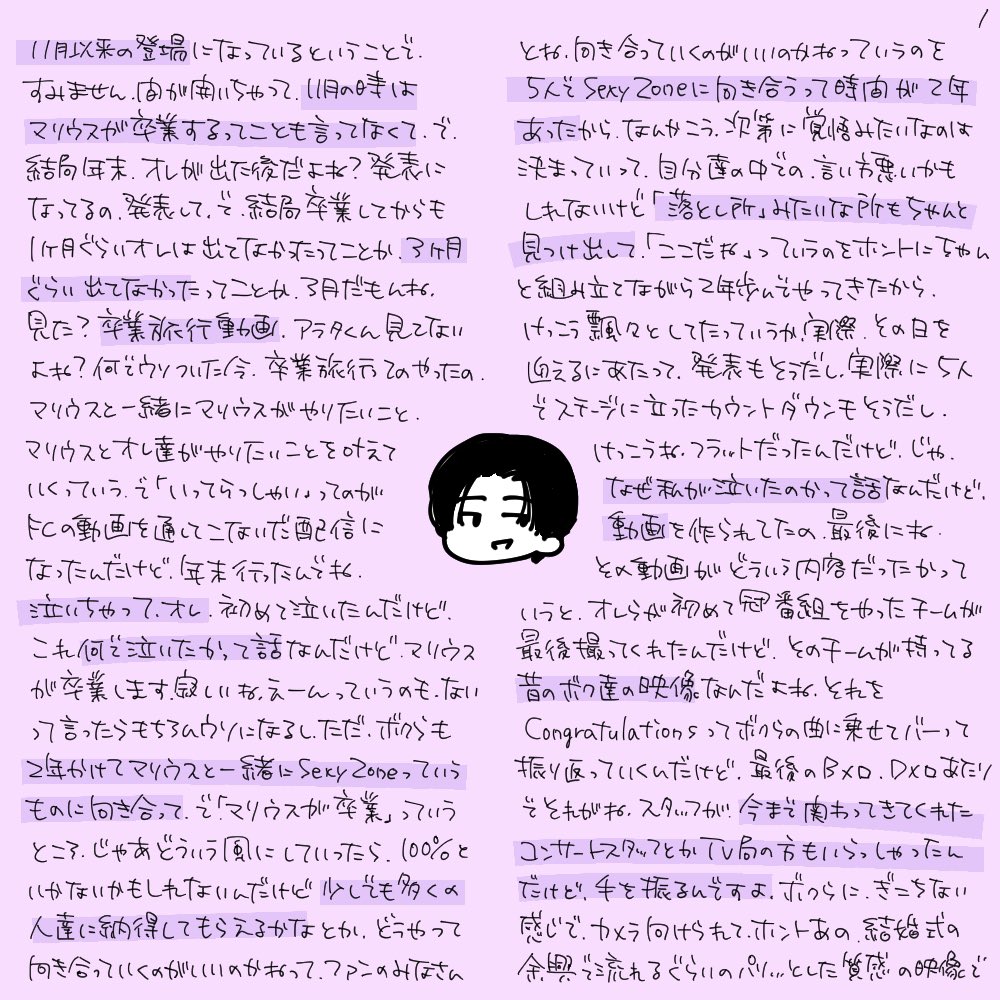 1
11月以来の登場になっているということで.
すみません.間が開いちゃって.11月の時は
マリウスが卒業するってことも言ってなくて.で.
結局年末.オレが出た後だよね?発表に
なってるの.発表して.で.結局卒業してからも
1ヶ月ぐらいオレは出てなかったってことか.3ヶ月
ぐらい出てなかったってことか.3月だもんね.
見た?卒業旅行動画.アラタくん見てない
よね?何でウソついた今.卒業旅行ってのやったの.
マリウスと一緒にマリウスがやりたいこと.
マリウスとオレ達がやりたいことを叶えて
いくっていう.で「いってらっしゃい」ってのが
FCの動画を通してこないだ配信に
なったんだけど.年末行ったんでね.
泣いちゃって.オレ.初めて泣いたんだけど.
これ何で泣いたかって話なんだけど.マリウス
が卒業します.寂しいね.えーんっていうのも.ない
って言ったらもちろんウソになるし.ただ.ボクらも
2年かけてマリウスと一緒にSexy Zoneっていう
ものに向き合って.で「マリウスが卒業」っていう
ところ.じゃあどういう風にしていったら.100%と
いかないかもしれないんだけど少しでも多くの
人達に納得してもらえるかなとか.どうやって
向き合っていくのがいいのかねって.ファンのみなさん
とね.向き合っていくのがいいのかねっていうのを
5人でSexy Zoneに向き合うって時間が2年
あったから.なんかこう.次第に覚悟みたいなのは
決まっていって.自分達の中での.言い方悪いかも
しれないけど「落とし所」みたいな所もちゃんと
見つけ出して.「ここだね」っていうのをホントにちゃん
と組み立てながら2年歩んでやってきたから.
けっこう飄々としてたっていうか.実際.その日を
迎えるにあたって.発表もそうだし.実際に5人
でステージに立ったカウントダウンもそうだし.
けっこうね.フラットだったんだけど.じゃ.
なぜ私が泣いたのかって話なんだけど.
動画を作られてたの.最後にね.
その動画がどういう内容だったかって
いうと.オレらが初めて冠番組をやったチームが
最後撮ってくれたんだけど.そのチームが持ってる
昔のボク達の映像なんだよね.それを
Congratulationsってボクらの曲に乗せてバーって
振り返っていくんだけど.最後のB×□.D×□あたり
でそれがね.スタッフが.今まで関わってきてくれた
コンサートスタッフとかTV局の方もいらっしゃったん
だけど.手を振るんですよ.ボクらに.ぎこちない
感じで.カメラ向けられて.ホントあの.結婚式の
余興で流れるぐらいのパリッとした質感の映像で